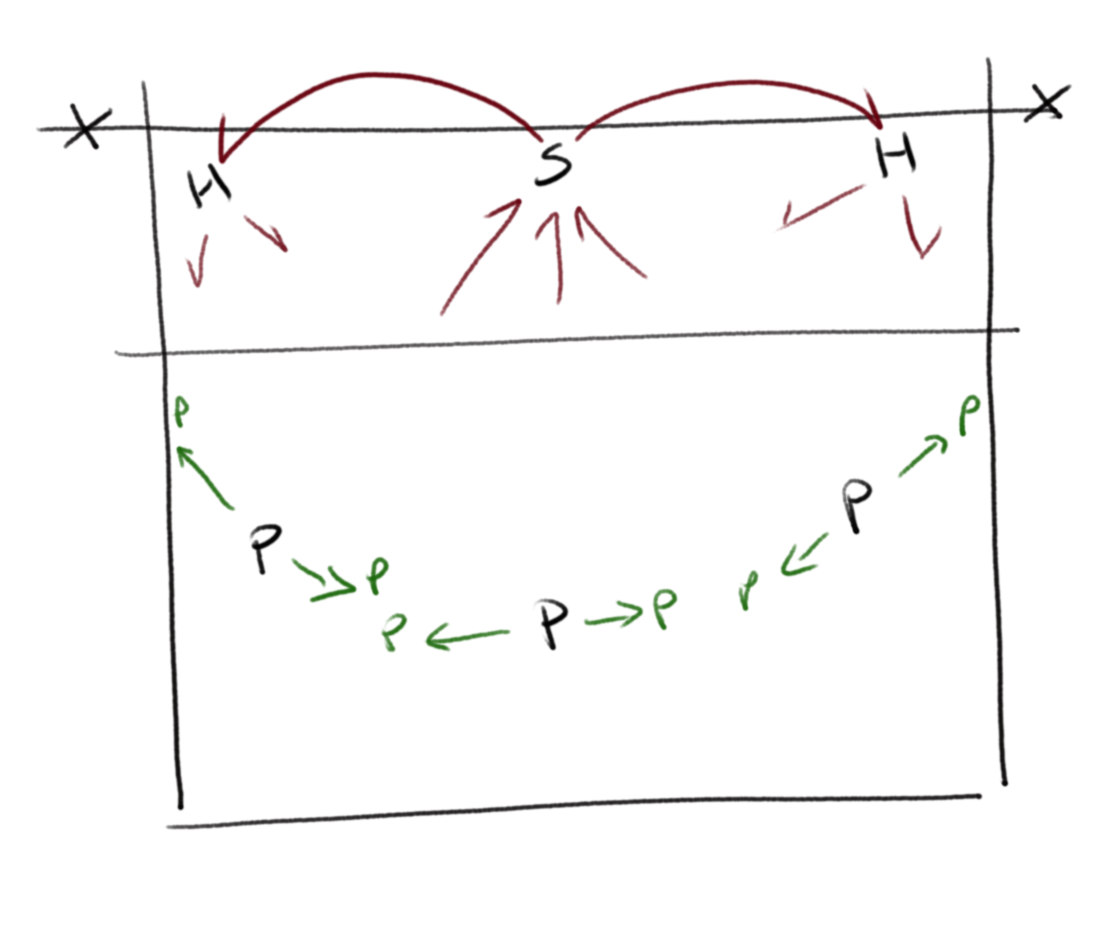 X X
H S H
P P
P
P P
P P P P